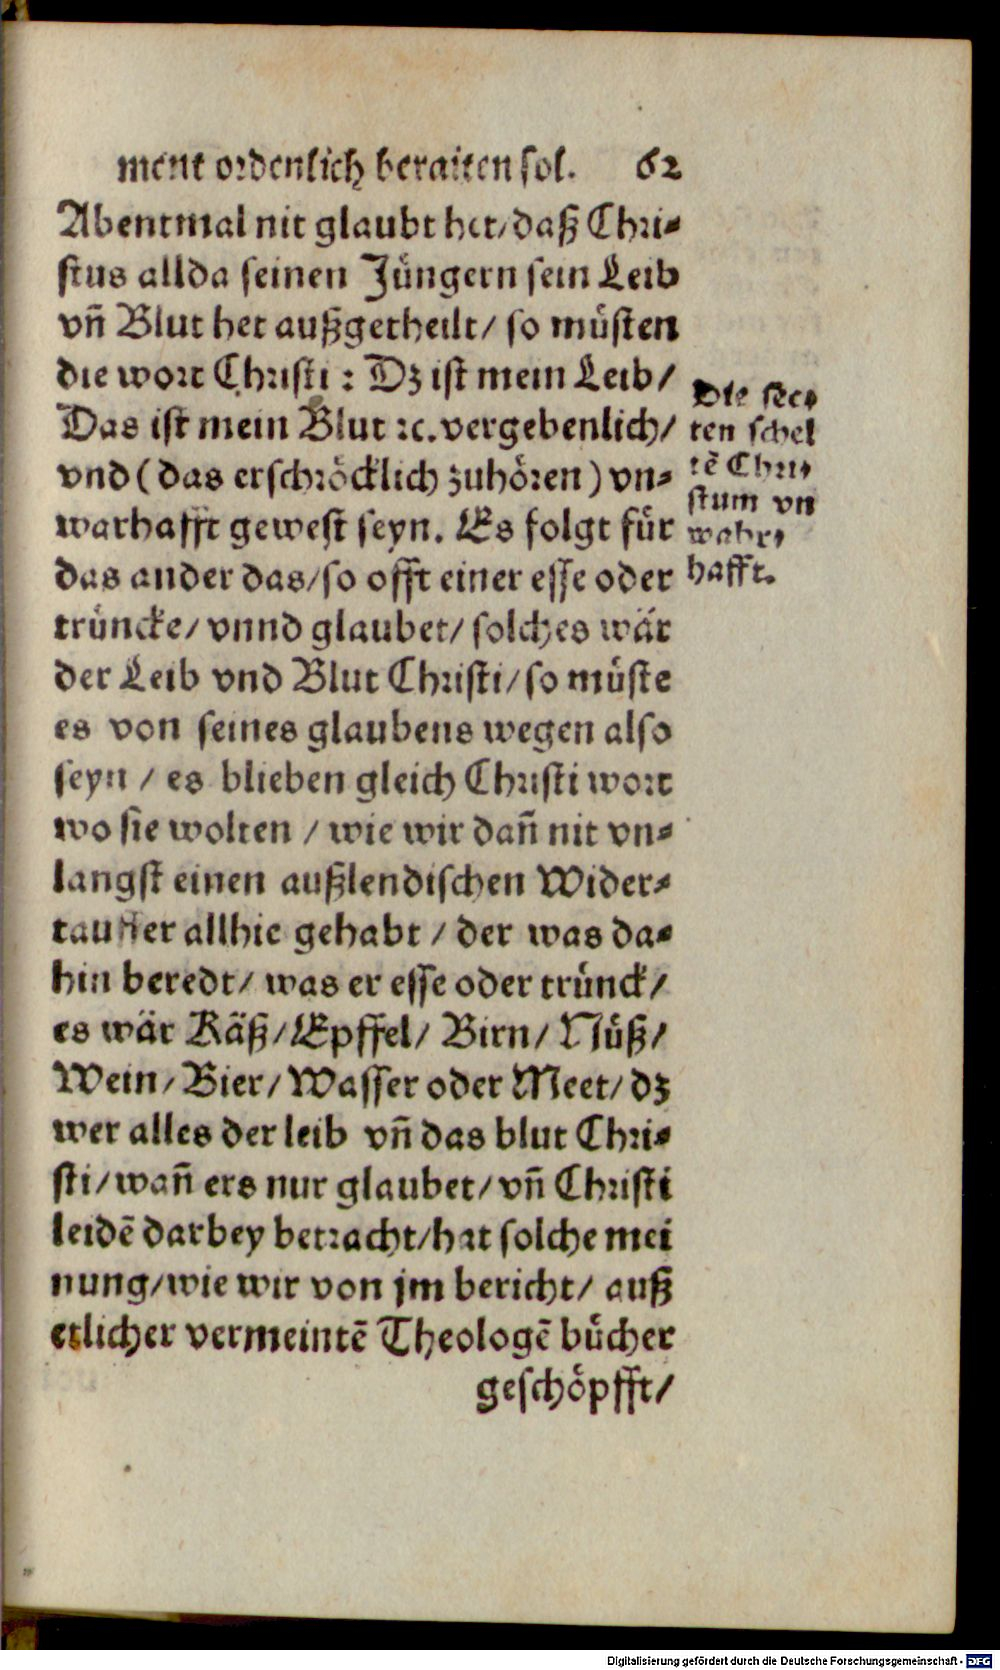 ment ordenlich beraiten sol. 62
Abentmal nit glaubt het/ daß Chri⸗
stus allda seinen Jüngern sein Leib
vñ Blut het außgetheilt/ so müsten
die wort Christi : Dz ist mein Leib/
Das ist mein Blut ꝛc. vergebenlich/
vnd ( das erschröcklich zuhören ) vn⸗
warhafft gewest seyn. Es folgt für
das ander das/ so offt einer esse oder
trüncke/ vnnd glaubet/ solches wär
der Leib vnd Blut Christi/ so müste
es von seines glaubens wegen also
seyn / es blieben gleich Christi wort
wo sie wolten / wie wir dañ nit vn⸗
langst einen außlendischen Wider⸗
tauffer allhie gehabt / der was da⸗
hin beredt/ was er esse oder trünck/
es wär Käß/ Epffel/ Birn/ Nüß/
Wein/ Bier/ Wasser oder Meet/ dz
wer alles der leib vñ das blut Chri⸗
sti/ wañ ers nur glaubet/ vñ Christi
leidē darbey betracht/ hat solche mei
nung/ wie wir von jm bericht/ auß
etlicher vermeintē Theologē bücher
geschöpfft/
Die Sec⸗
ten schel
tē Chri⸗
stum vn
wahr⸗
hafft.
Digitalisierung gefördert durch die Deutsche Forschungsgemeinschaft - DFG